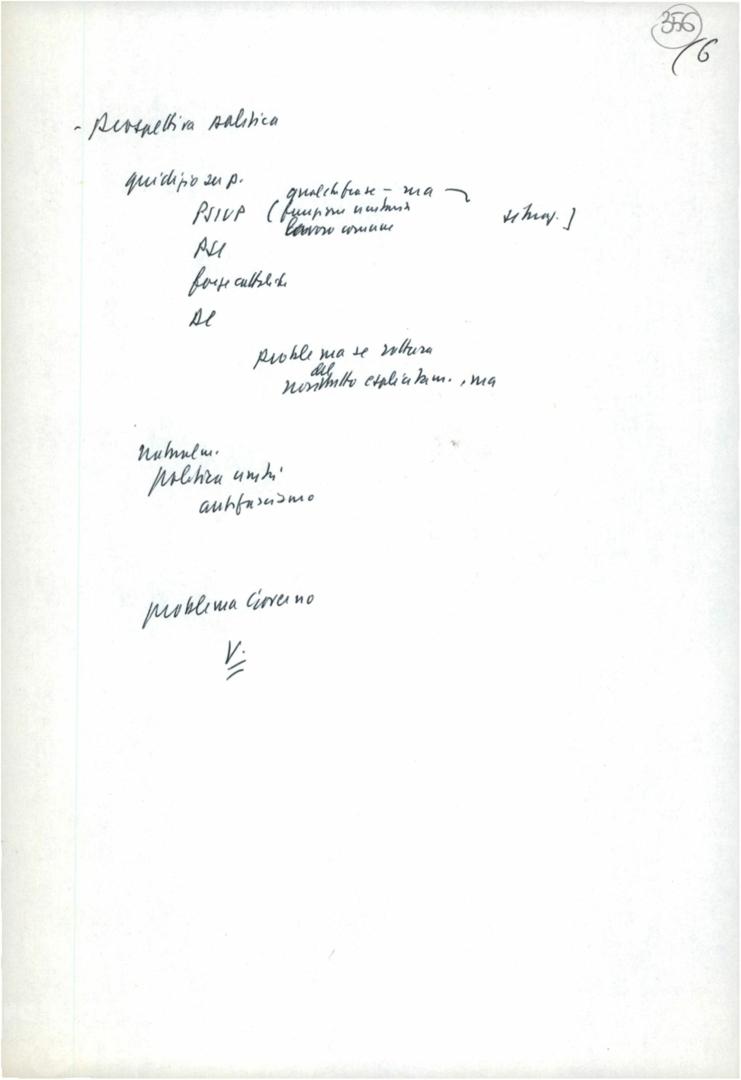 356
/6
- prospettiva politica
giudizio su p.
qualche frase - ma
PSIUP ( funzione unitaria
lavoro comune
PSI
forze cattoliche
DC
problema se rottura
del
non   esplicitam., ma
naturalm.
politica unità
antifascismo
problema Governo
V.